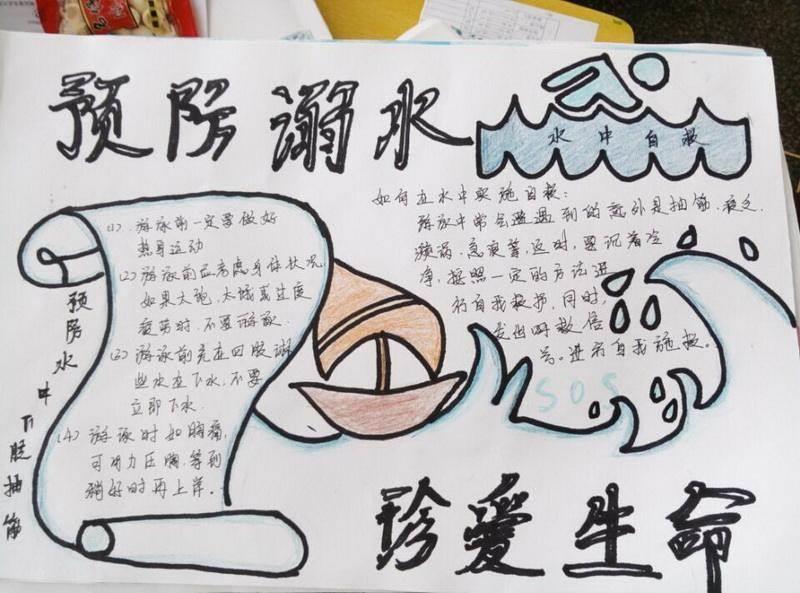 预防溺水
水中自救
如何在水中实施自救:
游泳中常会遇遇到的意外是抽筋、疲乏、
漩涡、急浪等,这时,要沉着冷
净,按照一定的方法进
行自我救护,同时,
发出呼救信
号。进行自我施救。
SOS
(1).游泳前一定要做好
热身运动
(2)游泳前应考虑身体状况,
如果太饱、太饿或过度
疲劳时,不要游泳.
(3)游泳前先在四肢淋
些水在下水,不要
立即下水.
(4)游泳时如胸痛,
可用力压胸,等到
稍好时再上岸。
预防水中下肢抽筋
珍爱生命